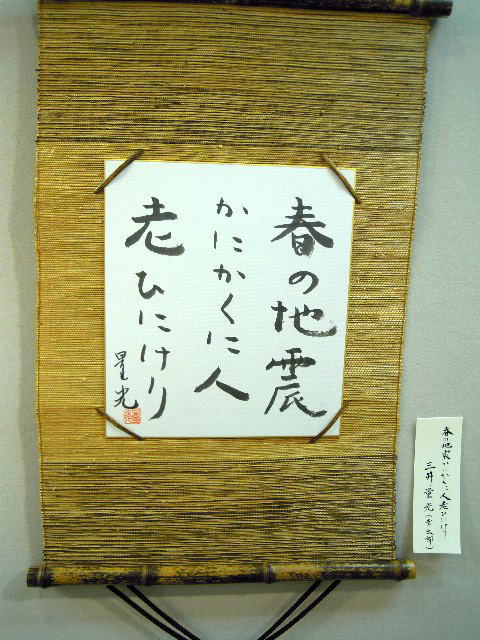 春の地震
かにかくに人
老ひにけり
星光
春の地震かにかくに人老ひにけり